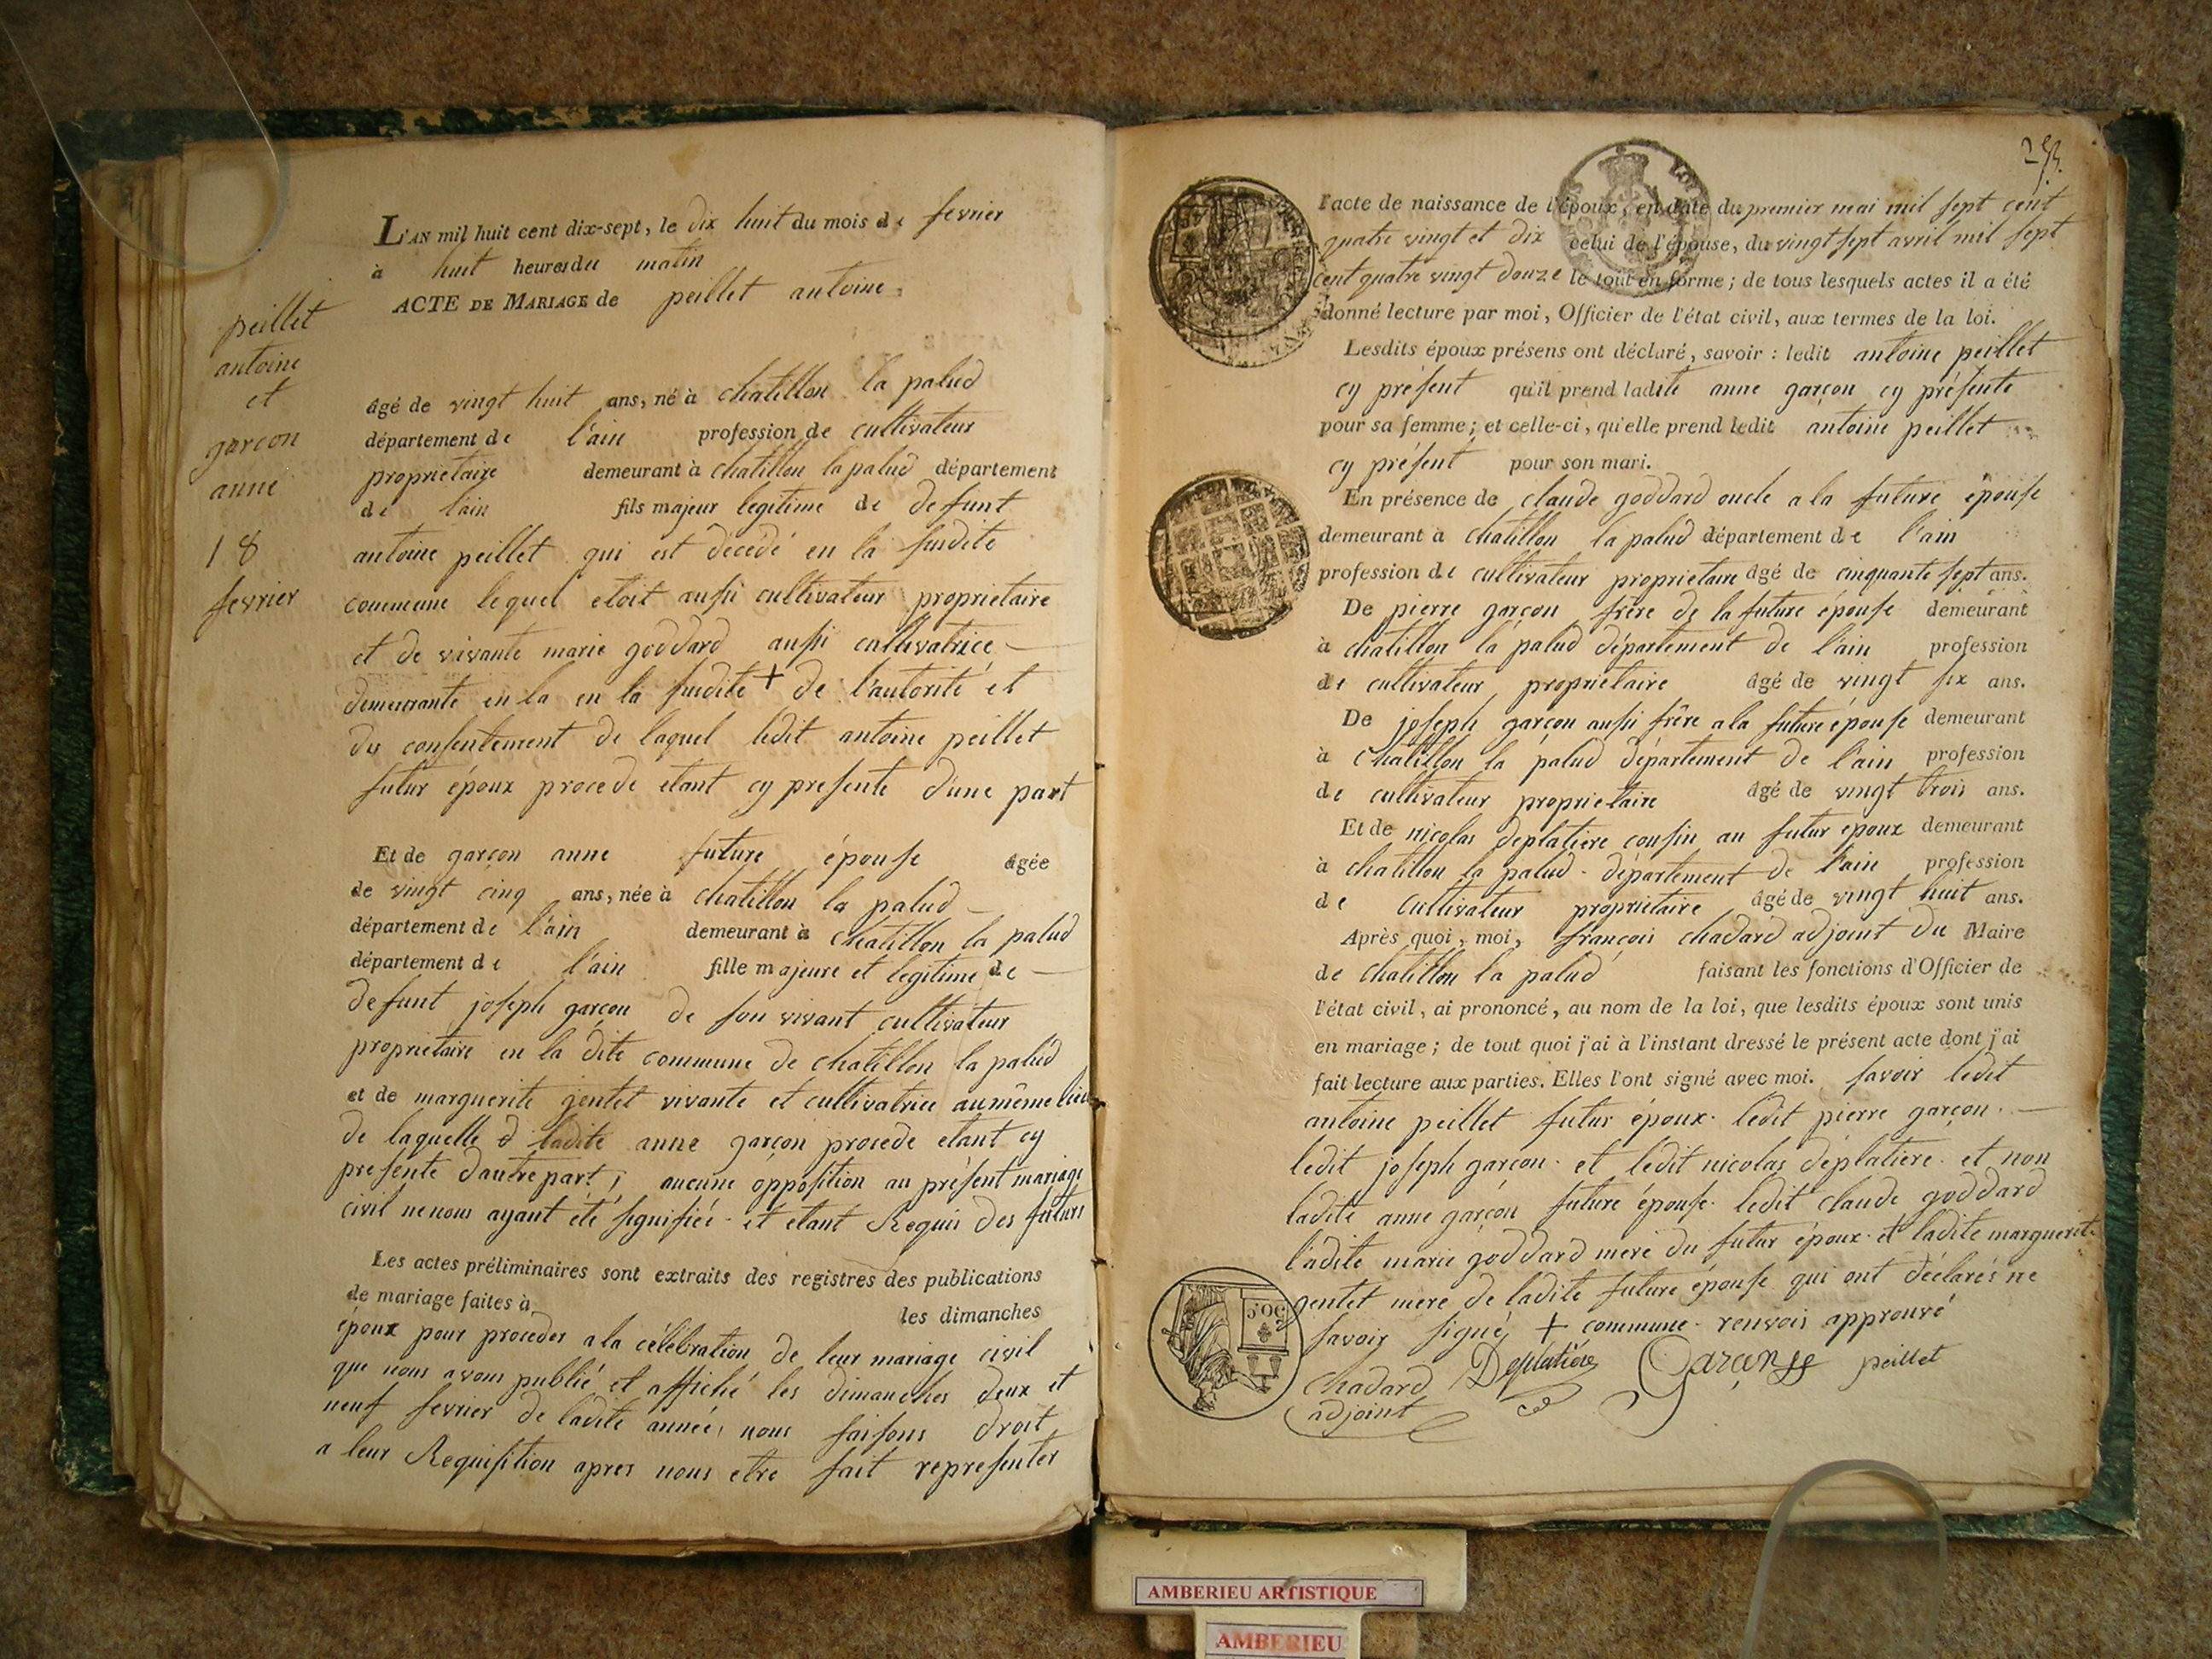 L'AN mil huit cent dix-sept, le dix huit du mois de fevrier
à huit heures du matin
ACTE DE MARIAGE de peillet antoine
peillet
antoine
et
garcon
anne
18
fevrier
âgé de vingt huit ans, né à chatillon la palud
département de l'ain profession de cultivateur
proprietaire demeurant à chatillon la palud département
de lain fils majeur legitime de defunt
antoine peillet qui est décédé en la susdite
commune lequel etoit aussi cultivateur proprietaire
et de vivante marie goddard aussi cultivatrice
demeurante en la en la susdite + de l'autorité et
du consentement de laquel ledit antoine peillet
futur époux procede etant cy presente d'une part
Et de garçon anne future épouse âgée
de vingt cinq ans, née à chatillon la palud
département de l'ain demeurant à chatillon la palud
département de l'ain fille majeure et legitime de
defunt joseph garçon de son vivant cultivateur
proprietaire en la dite commune de chatillon la palud
et de marguerite gentet vivante et cultivatrice au même lieu
de laquelle ladite anne garçon procede etant cy
presente d'autre part; aucune opposition au présent mariage
civil ne nous ayant été signifiée et etant Requis des futurs
Les actes préliminaires sont extraits des registres des publications
de mariage faites à les dimanches
époux pour proceder a la célébration de leur mariage civil
que nous avons publié et affiché les dimanches deux et
neuf fevrier de ladite année, nous faisons droit
a leur Requisition apres nous etre fait representer
253.
l'acte de naissance de l'époux, en date du premier mai mil sept cent
quatre vingt et dix celui de l'épouse, du vingt sept avril mil sept
cent quatre vingt douze le tout en forme; de tous lesquels actes il a été
donné lecture par moi, Officier de l'état civil, aux termes de la loi.
Lesdits époux présens ont déclaré, savoir: ledit antoine peillet
cy présent qu'il prend ladite anne garçon cy présente
pour sa femme; et celle-ci, qu'elle prend ledit antoine peillet
cy présent pour son mari.
En présence de claude goddard oncle a la future épouse
demeurant à chatillon la palud département de l'ain
profession de cultivateur proprietaire âgé de cinquante sept ans.
De pierre garçon frère de la future épouse demeurant
à chatillon la palud département de l'ain profession
de cultivateur proprietaire âgé de vingt six ans.
De joseph garçon aussi frère a la future épouse demeurant
à chatillon la palud département de l'ain profession
de cultivateur proprietaire âgé de vingt trois ans.
Et de nicolas deplatiere cousin au futur epoux demeurant
à chatillon la palud département de l'ain profession
de cultivateur proprietaire âgé de vingt huit ans.
Après quoi, moi, françois chadard adjoint du Maire
de chatillon la palud faisant les fonctions d'Officier de
l'état civil, ai prononcé, au nom de la loi, que lesdits époux sont unis
en mariage; de tout quoi j'ai à l'instant dressé le présent acte dont j'ai
fait lecture aux parties. Elles l'ont signé avec moi. savoir ledit
antoine peillet futur époux ledit pierre garçon
ledit joseph garçon et ledit nicolas déplatiere et non
ladite anne garçon future épouse ledit claude goddard
ladite marie goddard mere du futur époux et ladite marguerite
gentet mere de ladite future épouse qui ont déclarés ne
savoir signé + commune renvois approuvé
chadard Deplatiere Garçon peillet
adjoint
50 C.
AMBERIEU ARTISTIQUE
AMBERIEU